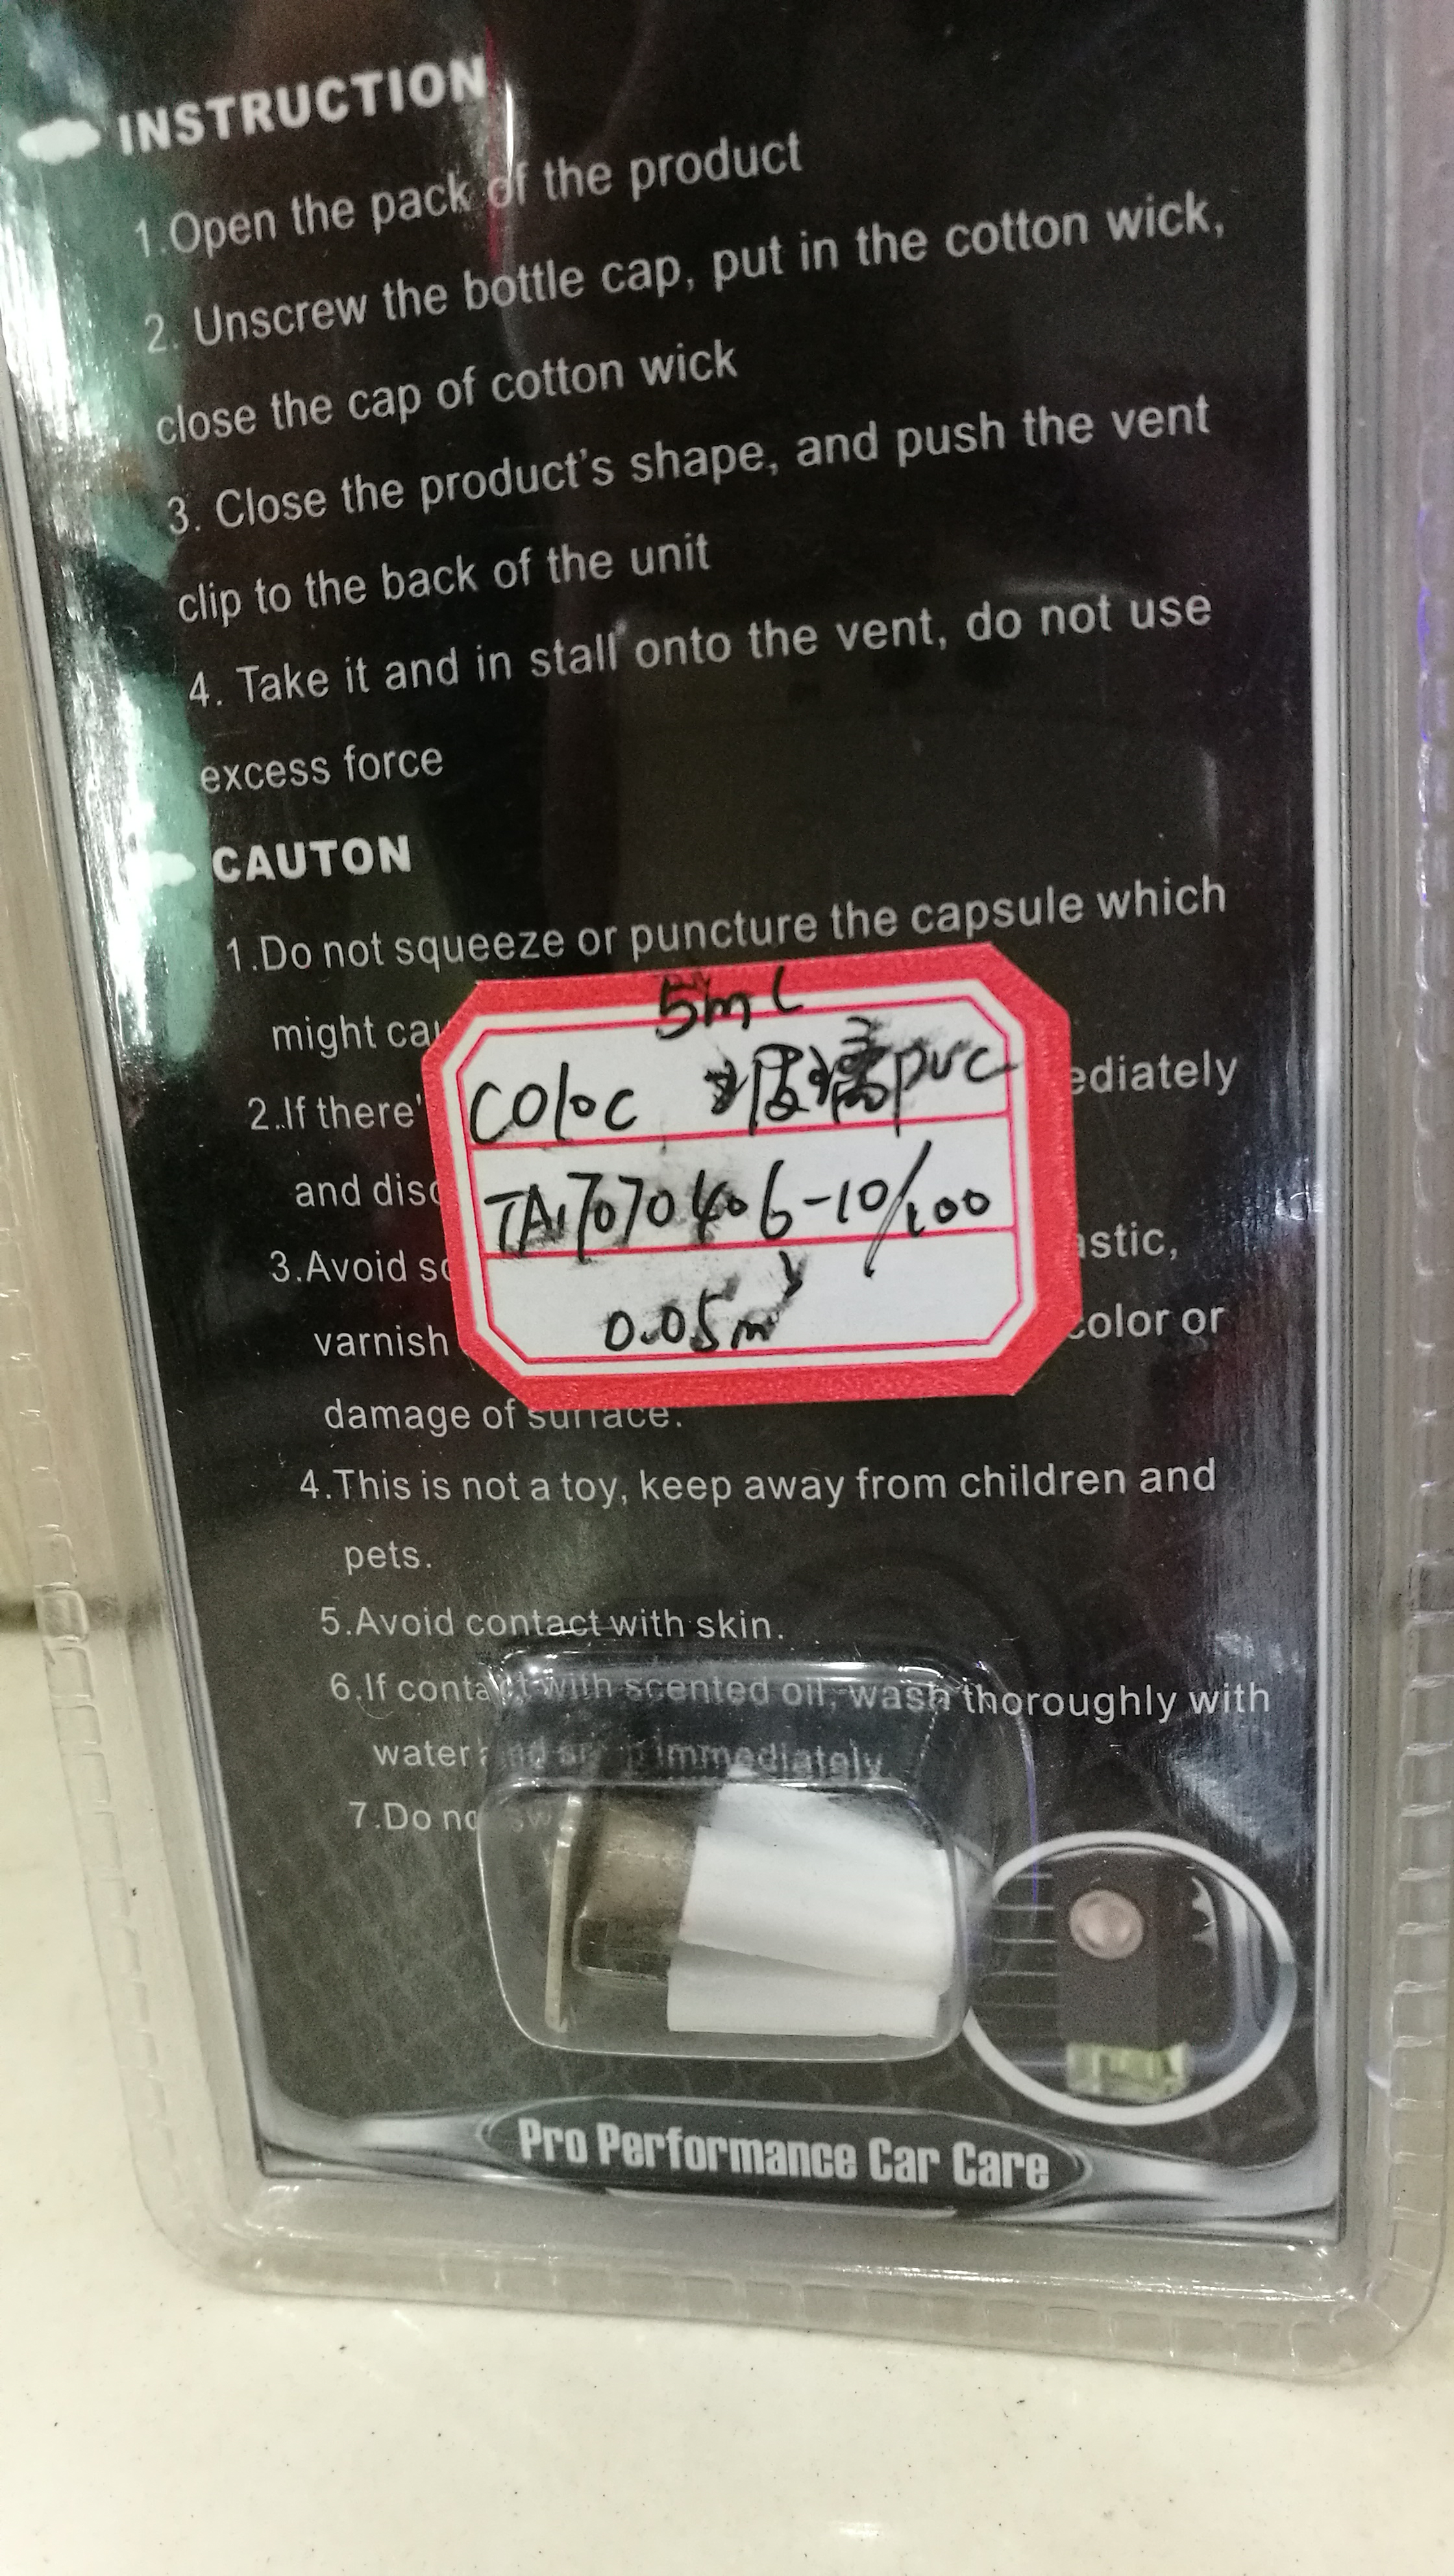 INSTRUCTION
1.Open the pack of the product
2. Unscrew the bottle cap, put in the cotton wick,
close the cap of cotton wick
3. Close the product's shape, and push the vent
clip to the back of the unit
4. Take it and in stall onto the vent, do not use
excess force
CAUTON
1.Do not squeeze or puncture the capsule which
might
2.If there'
and
3.Avoid
varnish color or
damage of surface.
4.This is not a toy, keep away from children and
pets.
5.Avoid contact with skin.
6.If contact with scented oil, wash thoroughly with
water immediately
7.Do
5ml
COloC PVC
TA17070406-10/100
0.05m
Pro Performance Car Care